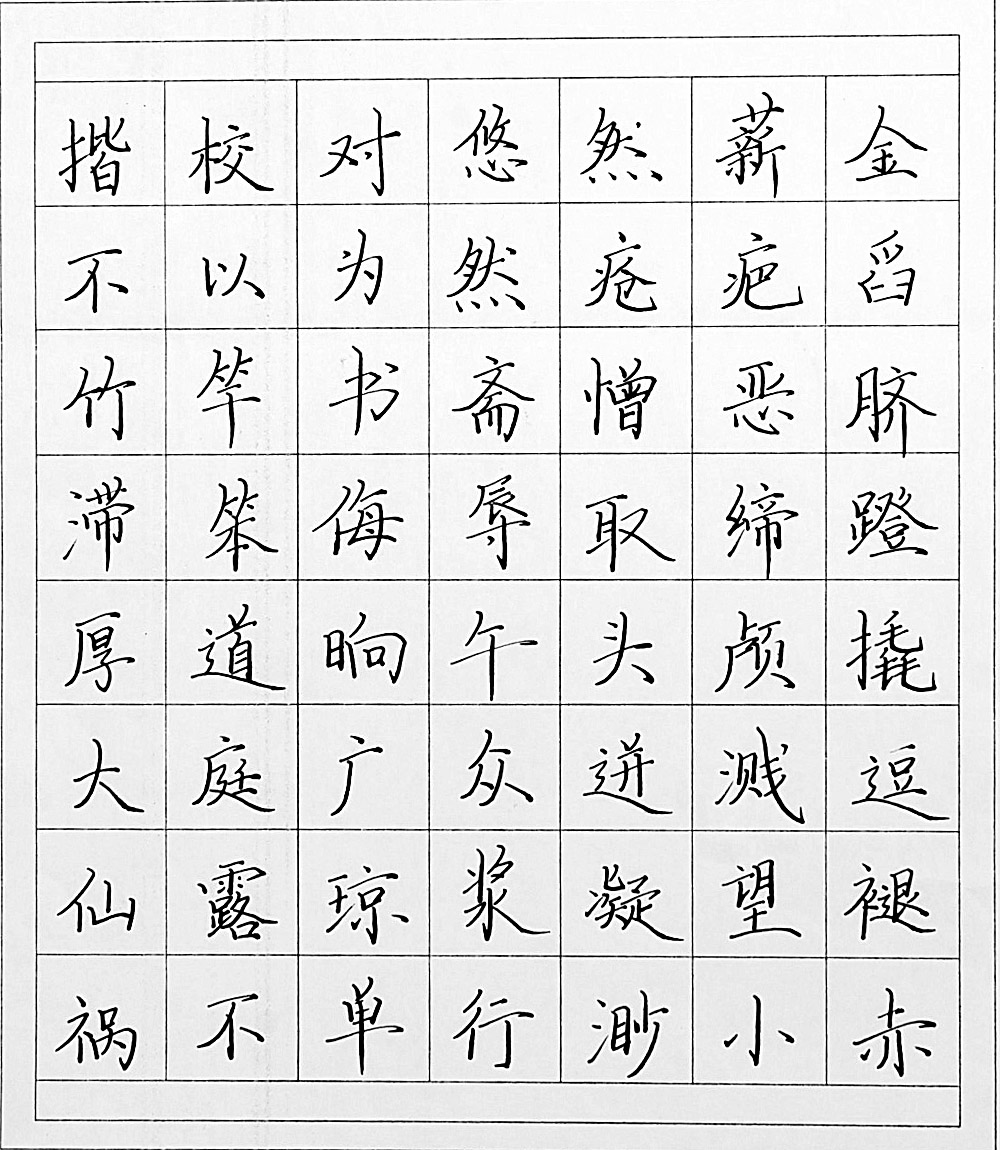 揩校对悠然薪金
不以为然疮疤舀
竹竿书斋憎恶脐
滞笨侮辱取缔蹬
厚道晌午头颅撬
大庭广众迸溅逗
仙露琼浆凝望褪
祸不单行渺小赤